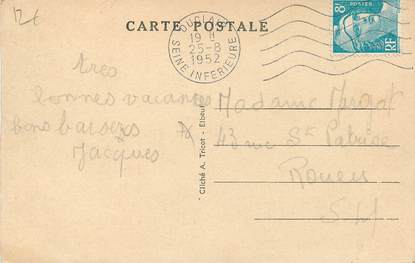 12f
CARTE POSTALE
19 H
25-8
1952
SEINE INFERIEURE
8F
POSTES
RF
très
bonnes vacances
bons baisers
Jacques
Madame
43 rue St Patrice
Rouen
S.I.
Cliché A. Tricot - Elbeuf